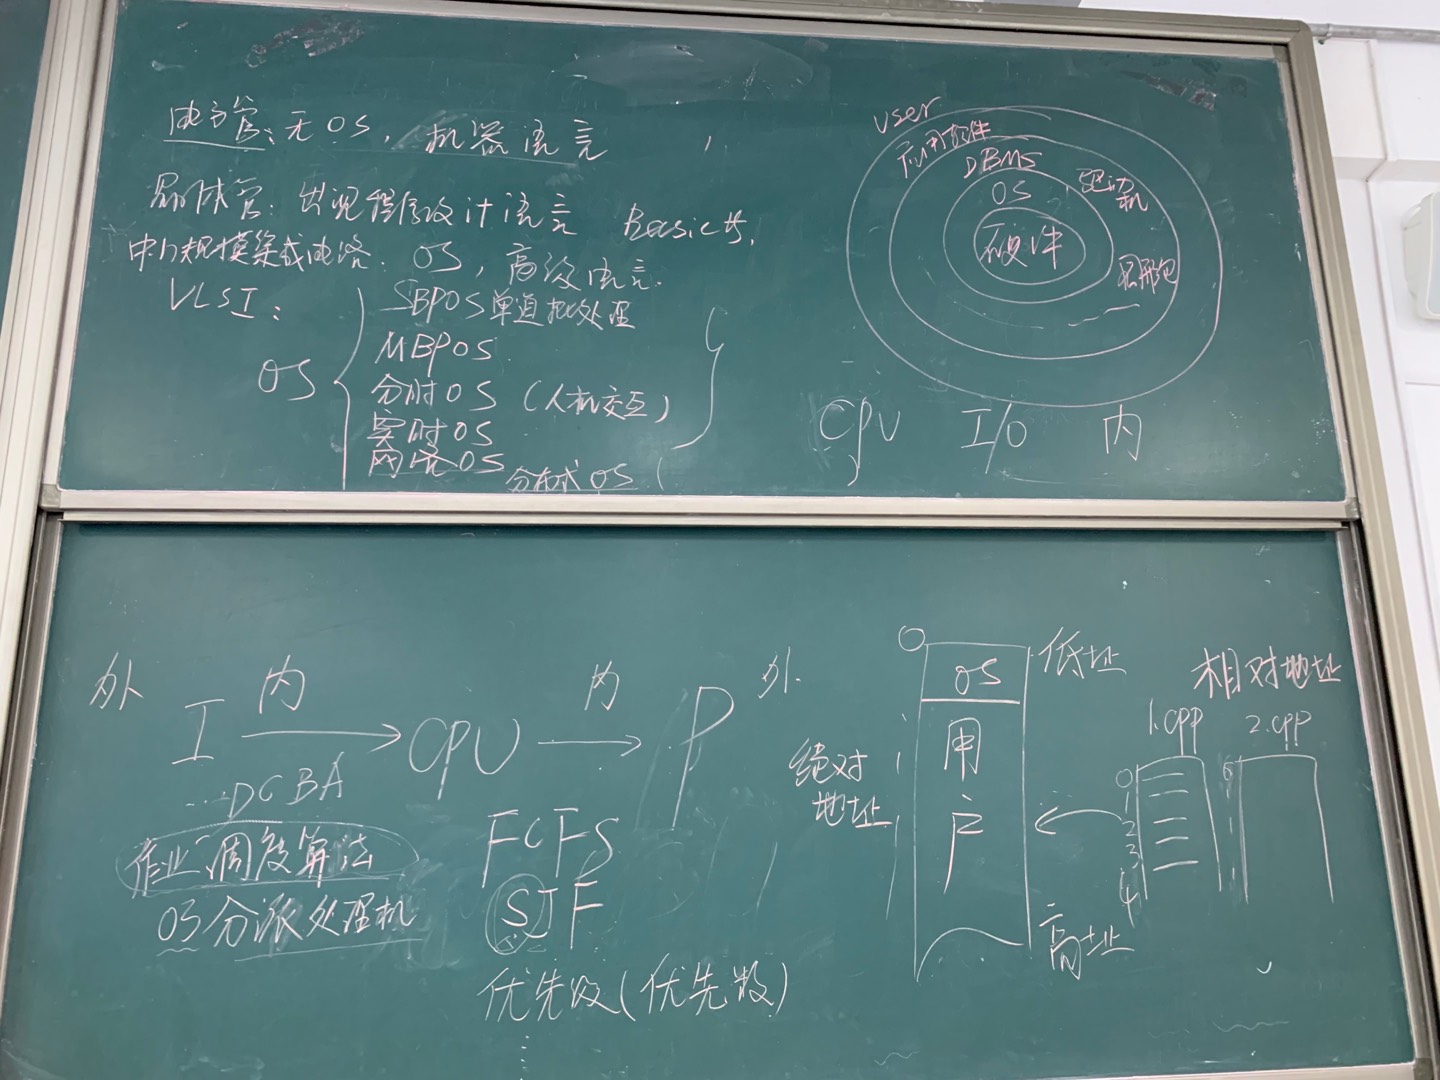 电子管:无OS,机器语言
晶体管:出现程序设计语言 Basic等.
中小规模集成电路:OS,高级语言.
VLSI:
OS
SBPOS单道批处理
MBPOS
分时OS(人机交互)
实时OS
网络OS
分布式OS
user
应用软件
DBMS
OS
硬件
图形包
CPU I/O 内
外 内 内 外
I CPU P
...DCBA
作业调度算法
OS分派处理机
FCFS
SJF
优先级(优先数)
0
OS
用户
低址
高址
绝对地址
相对地址
1.cpp 2.cpp
0
1
2
3
4